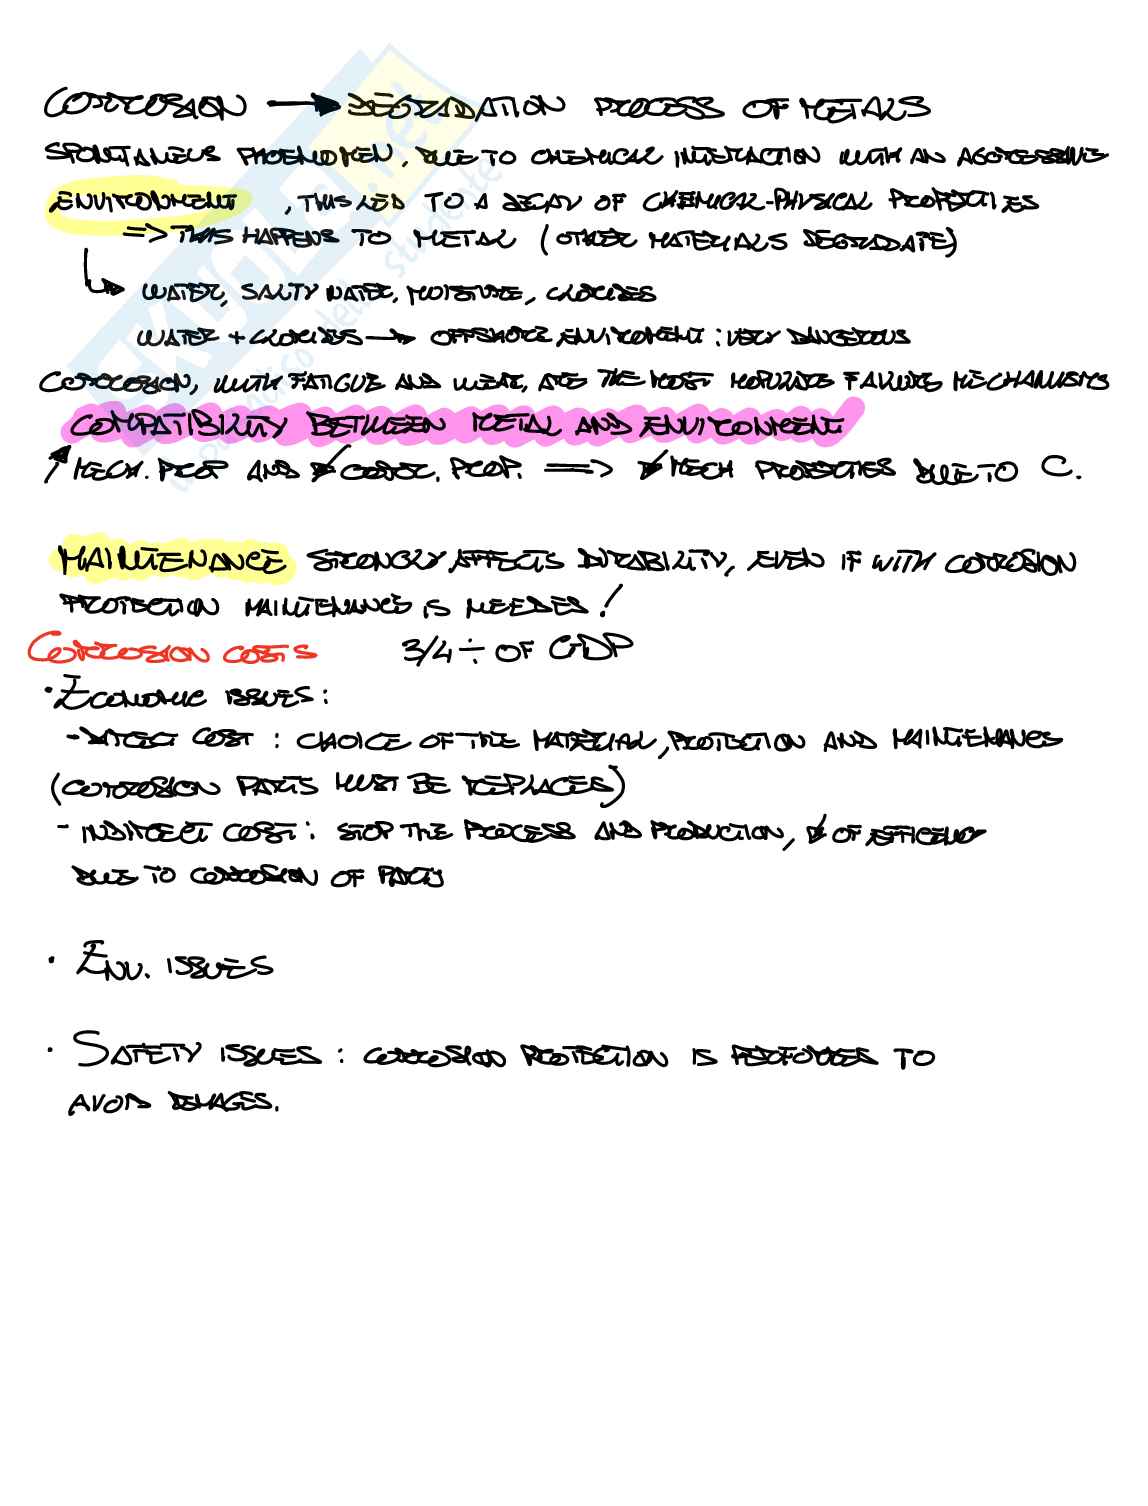 CORROSION → DEGRADATION PROCESS OF METALS
SPONTANEUS PHOENOMEN. DUE TO CHEMICAL INTERACTION WITH AN AGGRESSIVE
ENVIRONMENT, THIS LED TO A DECAY OF CHEMICAL-PHYSICAL PROPERTIES
=> THIS HAPPENS TO METAL (OTHER MATERIALS DEGRADATE)
↳ WATER, SALTY WATER, MOISTURE, CLORIDES
WATER + CLORIDES → OFFSHORE ENVIROMENT: VERY DANGEROUS
CORROSION, WITH FATIGUE AND WEAR, ARE THE MOST FAILURE MECHANISMS
COMPATIBILITY BETWEEN METAL AND ENVIRONMENT
↗ MECH. PROP AND ↙ CORR. PROP. ==> ↙ MECH PROPERTIES DUE TO C.
MAINTENANCE STRONGLY AFFECTS DURABILITY, EVEN IF WITH CORROSION
PROTECTION MAINTENANCE IS NEEDED!
CORROSION COSTS 3/4 ÷ OF GDP
• ECONOMIC ISSUES:
- DIRECT COST: CHOICE OF THE MATERIAL, PROTECTION AND MAINTENANCE
(CORROSION PARTS MUST BE REPLACED)
- INDIRECT COST: STOP THE PROCESS AND PRODUCTION, ↙ OF EFFICENCY
DUE TO CORROSION OF PARTS
• ENV. ISSUES
• SAFETY ISSUES: CORROSION PROTECTION IS PERFORMED TO
AVOID DEMAGES.